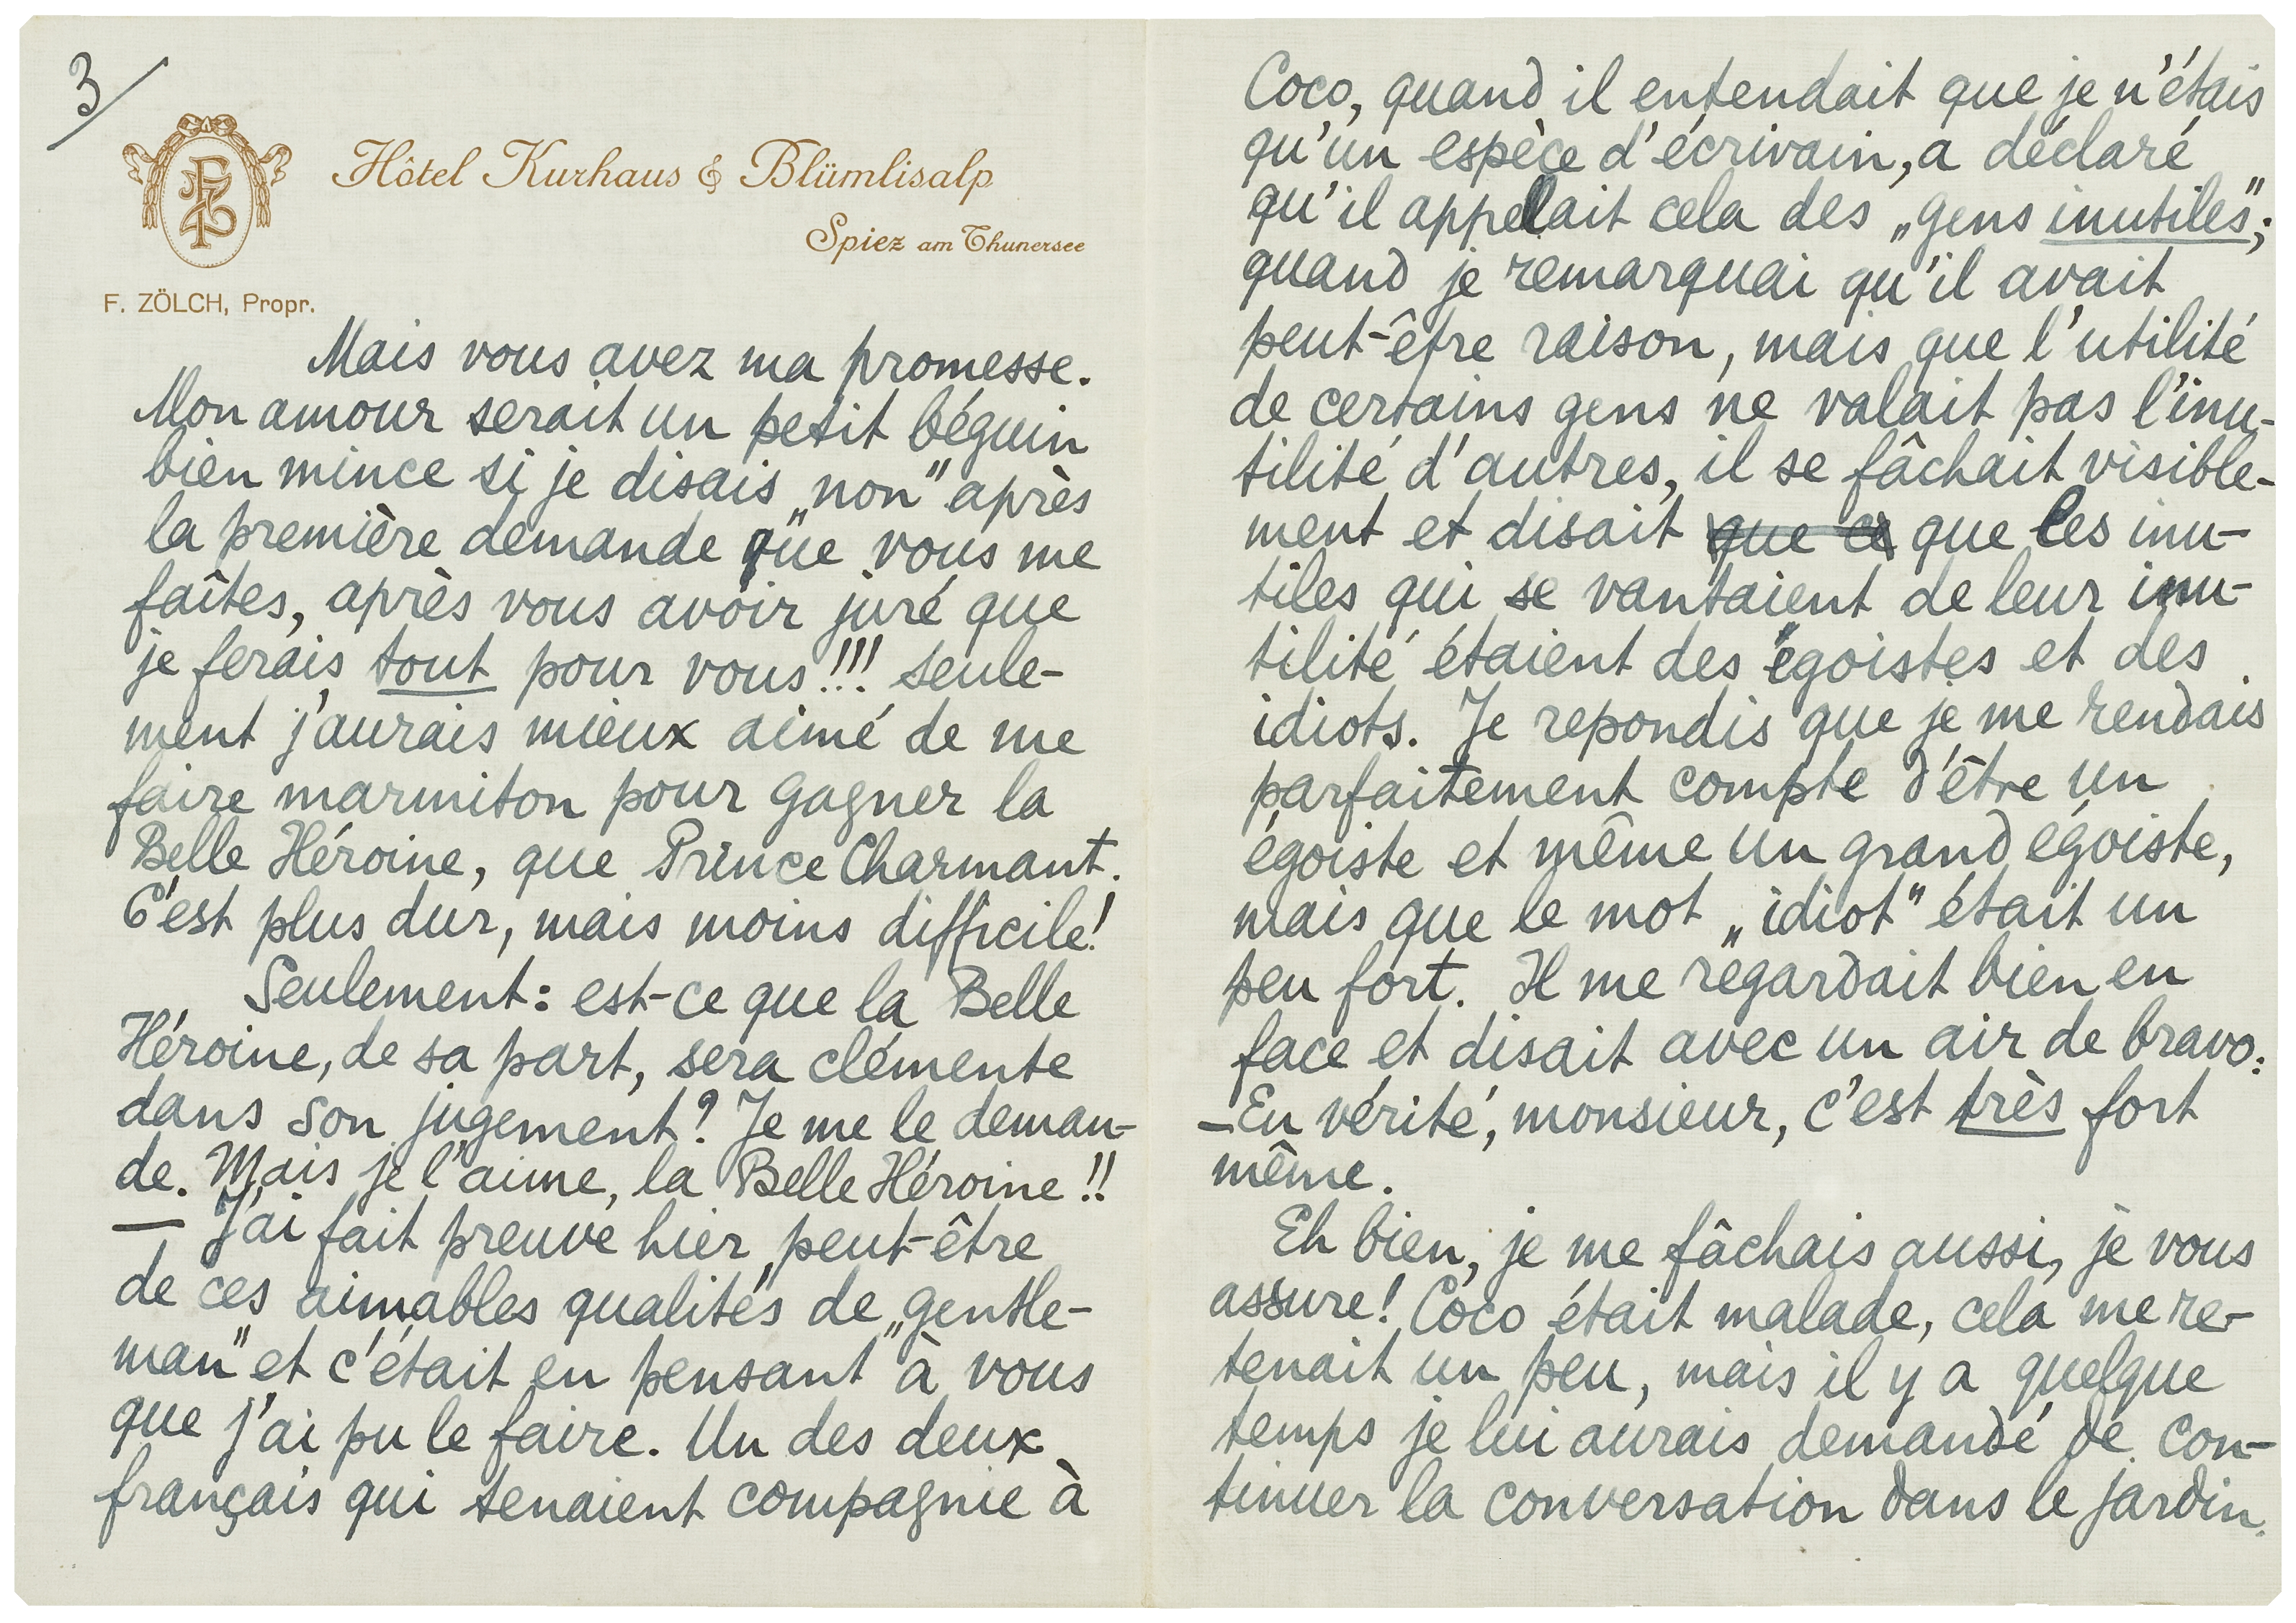 3/
FZ
Hôtel Kurhaus & Blümlisalp
Spiez am Thunersee
F. ZÖLCH, Propr.
Mais vous avez ma promesse.
Mon amour serait un petit béguin
bien mince si je disais „non" après
la première demande que vous me
faîtes, après vous avoir juré que
je ferais tout pour vous!!! seule-
ment j'aurais mieux aimé de me
faire marmiton pour gagner la
Belle Héroine, que Prince Charmant.
C'est plus dur, mais moins difficile!
Seulement: est-ce que la Belle
Héroine, de sa part, sera clémente
dans son jugement? Je me le deman-
de. Mais je l'aime, la Belle Héroine!!
— J'ai fait preuve hier, peut-être
de ces aimables qualités de „gentle-
man" et c'était en pensant à vous
que j'ai pu le faire. Un des deux
français qui tenaient compagnie à
Coco, quand il entendait que je n'étais
qu'un espèce d'écrivain, a déclaré
qu'il appelait cela des „gens inutiles";
quand je remarquai qu'il avait
peut-être raison, mais que l'utilité
de certains gens ne valait pas l'inu-
tilité d'autres, il se fâchait visible-
ment et disait que ce que les inu-
tiles qui se vantaient de leur inu-
tilité étaient des égoistes et des
idiots. Je repondis que je me rendais
parfaitement compte d'être un
égoiste et même un grand égoiste,
mais que le mot „idiot" était un
peu fort. Il me regardait bien en
face et disait avec un air de bravo:
—En vérité, monsieur, c'est très fort
même.
Eh bien, je me fâchais aussi, je vous
assure! Coco était malade, cela me re-
tenait un peu, mais il y a quelque
temps je lui aurais demandé de con-
tinuer la conversation dans le jardin.